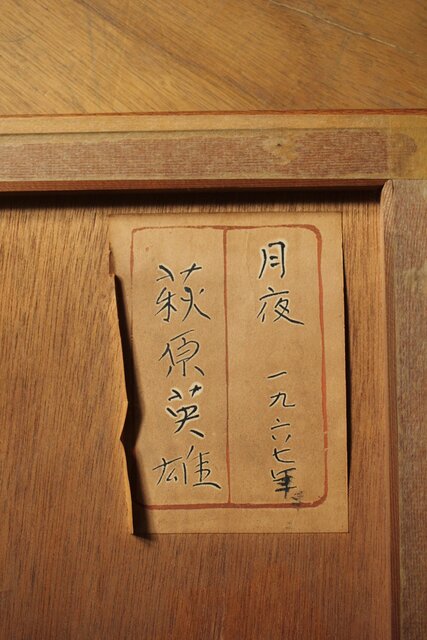 月夜 一九六七年
萩原英雄